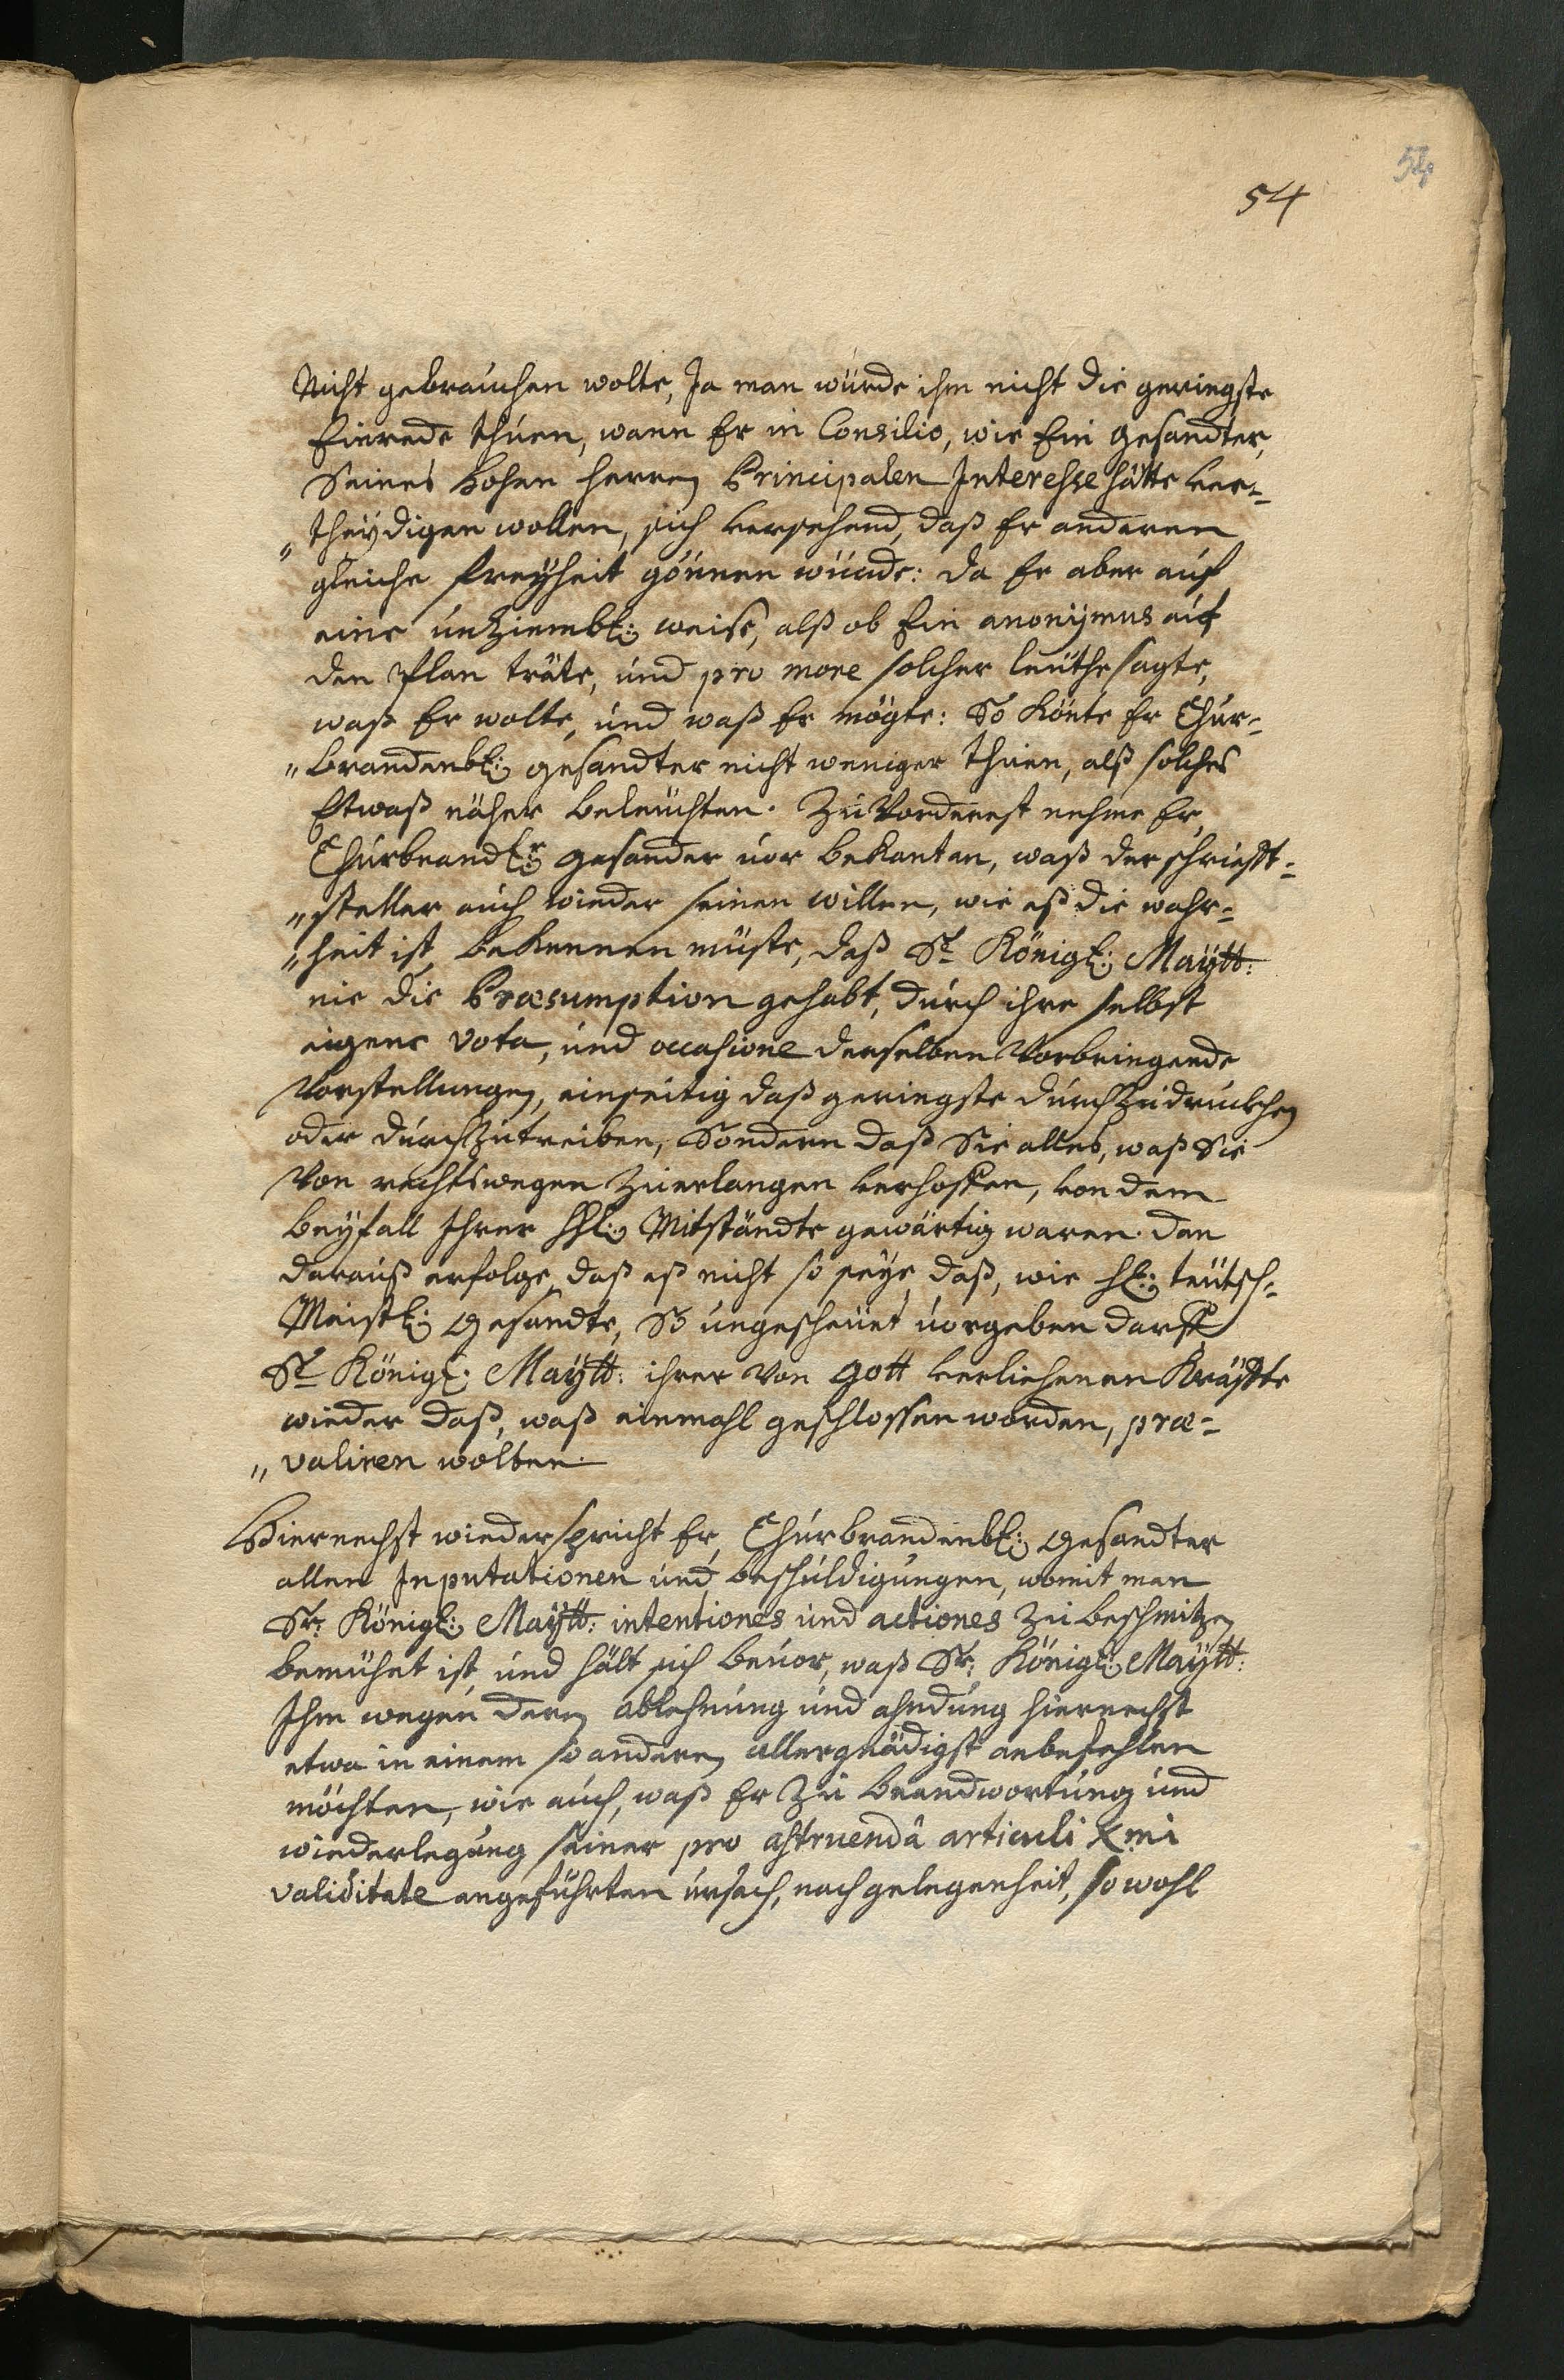 54
54
Nicht gebrauchen wolte, Ja man würde ihm nicht die geringste
Einrede thuen, wann Er in Consilio, wie Ein gesandter,
Seines Hohen herren Principalen Interesse hätte ver-
„theydigen wollen, sich versehend, daß Er anderen
gleiche freyheit gönnen würde: da Er aber auf
eine unziembl: weise, alß ob Ein anonymus auf
den Plan träte, und pro more solcher leuthe sagte,
waß Er wolte, und waß Er mögte: So Könte Er Chur-
„brandenbl: gesandter nicht weniger thuen, alß solches
Etwaß näher beleuchten. Zu Vorderest nehme Er,
Churbrandl:r gesander vor bekantan, waß der schriefft-
„steller auch wieder seinen willen, wie eß die wahr-
„heit ist, bekennen müste, daß Sr Königl: Maytt:
nie die Præsumption gehabt, durch ihre selbst
eigene vota, und occasione derselben Vorbringende
Vorstellungen, einseitig daß geringste durchzudruckhen
oder durchzutreiben, Sondern daß Sie alles, waß Sie
Von rechtswegen zuerlangen verhoffen, von dem
beyfall Ihrer hhl: Mitständte gewärtig waren. dan
darauß erfolge, daß eß nicht so seye, daß, wie hl: teutsch-
Meistl: Gesandte, So ungescheuet vorgeben darff
Sr Königl: Maytt: ihrer Von gott verliehenen Kräffte
wieder daß, waß einmahl geschlossen worden, præ-
„valiren wolten.
Hiernechst wiederspricht Er, Churbrandenbl: gesandter
allen Inputationen und beschuldigungen, womit man
Sr: Königl: Maytt: intentiones und actiones zu beschmitzen
bemühet ist, und hält sich bevor, waß Sr: Königl: Maytt:
Ihm wegen deren ablehnung und ahndung hiernechst
etwa in einem so anderen allergnädigst anbefehlen
möchten, wie auch, waß Er zu beandwortung und
wiederlegung seiner pro astruendâ articuli Xmi
validitate angeführten ursach, nach gelegenheit, so wohl